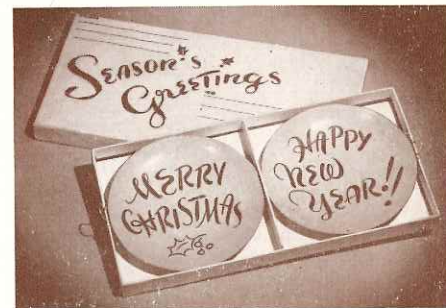 SEASON'S
GREETINGS
MERRY
CHRISTMAS
HAPPY
NEW
YEAR!!